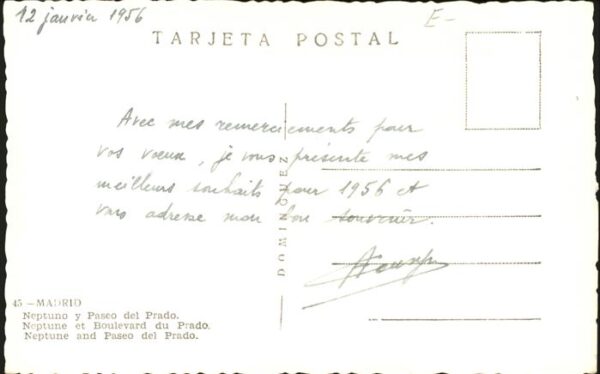 12 janvier 1956
E-
TARJETA POSTAL
Avec mes remerciements pour
vos voeux, je vous présente mes
meilleurs souhaits pour 1956 et
vous adresse mon bon souvenir.
DOMINGUEZ
45 - MADRID
Neptuno y Paseo del Prado.
Neptune et Boulevard du Prado.
Neptune and Paseo del Prado.